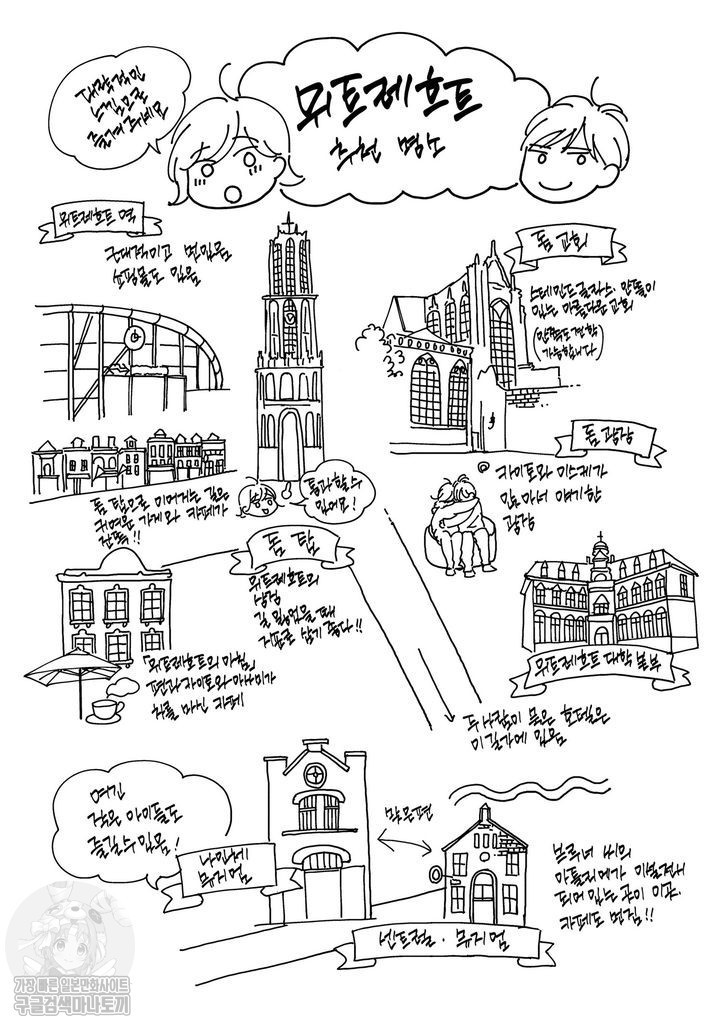 대략적인
느낌으로
즐겨 주세요
위트레흐트
추천 명소
위트레흐트 역
근대적이고 멋있음
쇼핑몰도 있음
돔 교회
스테인드글라스가 잔뜩
있는 아름다운 교회
(안쪽도 견학
가능합니다)
돔 광장
카이토와 미스제가
앉아서 얘기한
광장
돔 탑으로 이어지는 길은
귀여운 가게와 카페가
잔뜩!!
통과할 수
있어요!
돔 탑
위트레흐트의
상징
길 잃었을 때
지표로 삼기 좋다!!
위트레흐트 대학 본부
「위트레흐트의 아침」
편과 카이토와 아사미가
차를 마신 카페
두 사람이 묵은 호텔은
이 길가에 있음
여긴
작은 아이들도
즐길 수 있음!
나인체
뮤지엄
맞은편
센트럴·뮤지엄
브루너 씨의
아틀리에가 이설전시
되어 있는 곳이 이곳.
카페도 멋짐!!
가장 빠른 일본만화사이트
구글검색마나토끼